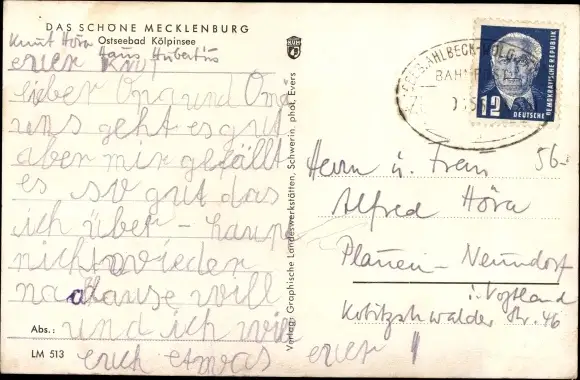 DAS SCHÖNE MECKLENBURG
Ostseebad Kölpinsee
Knut Höra
Haus Hubertus
euer Knut
lieber Opa und Oma
uns geht es gut
aber mir gefällt
es so gut das
ich über-haupt
nicht wieder
nachause will
und ich
euch etwas euer
Abs.:
LM 513
Verlag: Graphische Landeswerkstätten, Schwerin, phot. Evers
AHLBECK-WOLG
BAHNPOST
12
DEUTSCHE
DEMOKRATISCHE REPUBLIK
56-
Herrn u. Frau
Alfred Höra
Plauen-Neundorf
i. Vogtland
Kobitzschwalder Str. 46